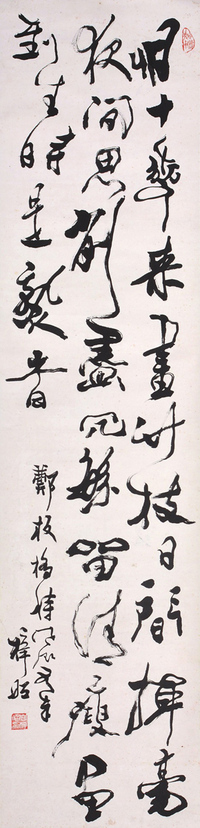 四十年来畫竹枝日間揮毫
夜間思削盡冗繁留清瘦畫
到生時是熟旹
鄭板橋詩